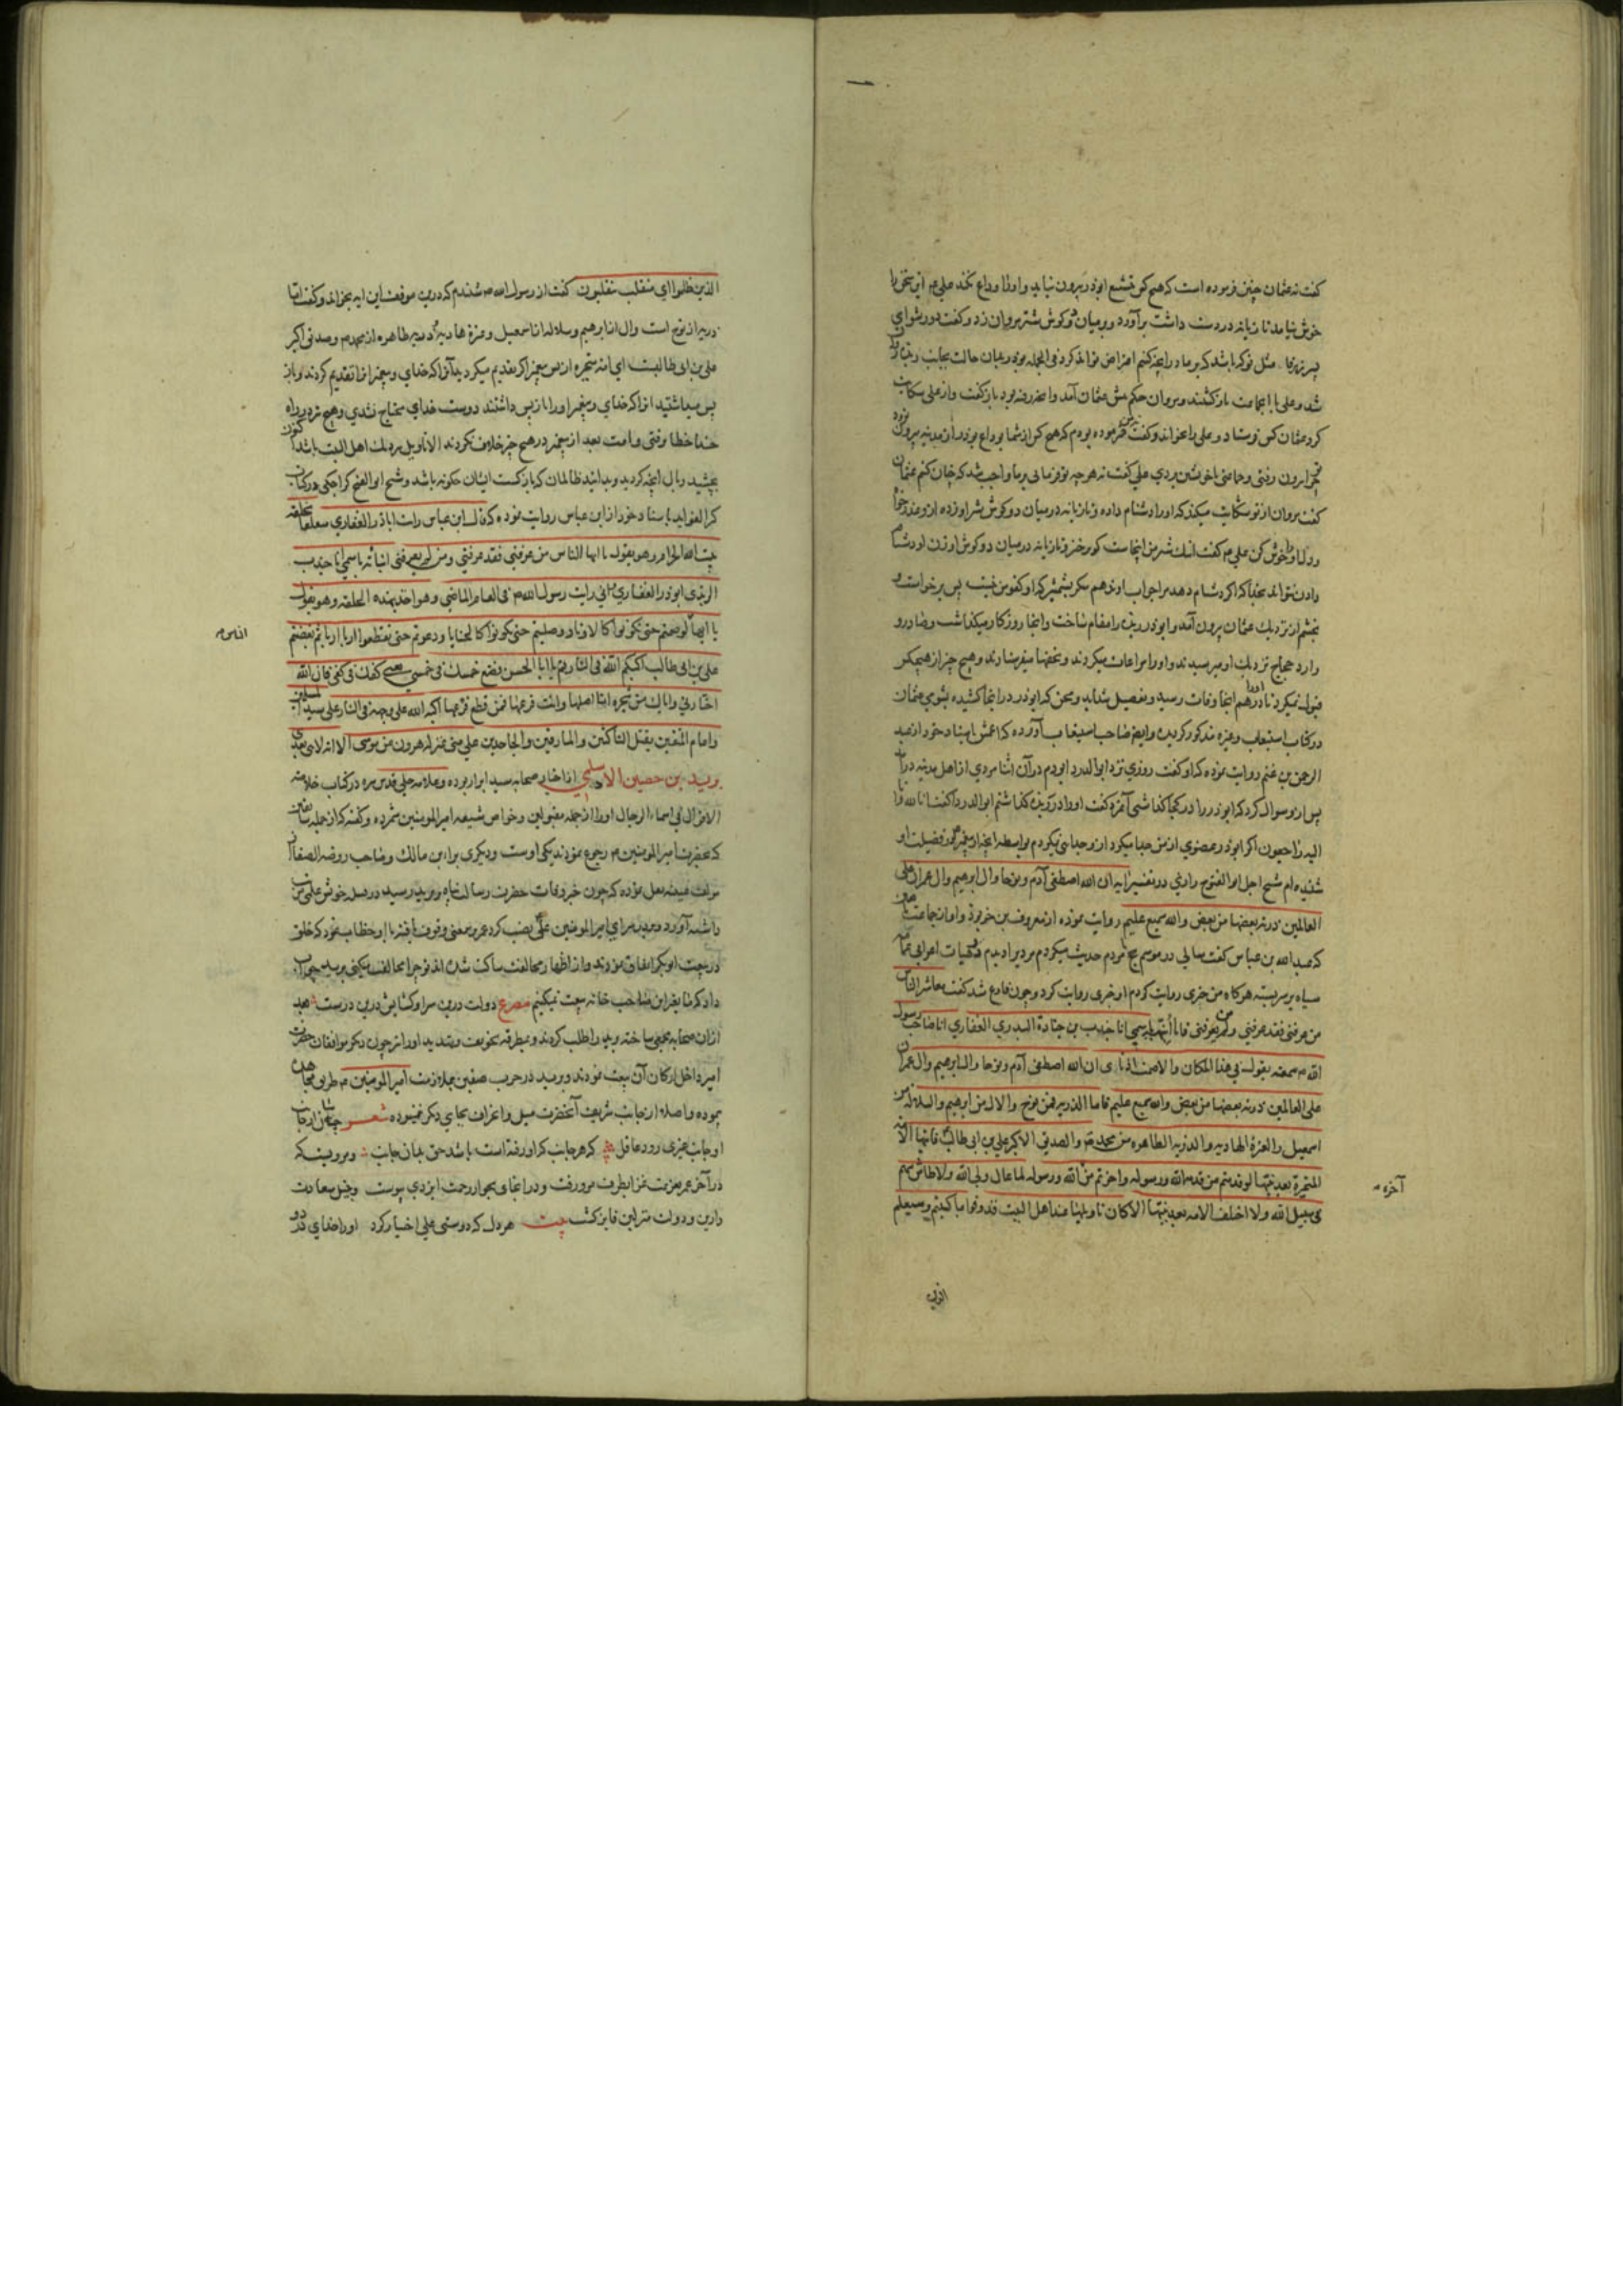 کفت نه عثمان چنین فرموده است که هیچ کس تشیع ابوذر بیرون نیاید و او را وداع نکند علی م این سخن را
خوش نیامد تازیانه در دست داشت برآورد و بمیان دو کوش شتر مروان زد و کفت دور شو ای
شد و علی با جماعت بازکشتند و مروان حکم پیش عثمان آمد و انچه رفته بود بازکفت و از علی شکایت
کرد عثمان کس فرستاد و علی را بخواند و کفت من فرموده بودم که هیچ کس از شما بوداع بوذر از مدینه بیرون نرود
چرا بیرون رفتی و جماعتی با خویشتن بردی علی کفت نه هرچه تو فرمایی بر ما واجب شد که چنان کنم عثمان
کفت مروان از تو شکایت میکند که او را دشنام داده و تازیانه در میان دو کوش شتر او زده از و عذر خواه
و دل او را خوش کن علی م کفت اینک شتر من اینجاست کو برخیز و تازیانه در میان دو کوش او زن اما دشنام
دادن نتواند بخدا که اکر دشنام دهد مرا جواب او ندهم مکر بشمشیر که او کفو من نیست پس برخواست و
بخشم از نزدیک عثمان بیرون آمد و ابوذر ربذه را مقام ساخت و انجا روزکار میکذاشت و صادر و
وارد حجاج نزدیک او میرسیدند و او را مراعات میکردند و تحفها میفرستادند و هیچ چیز از هیچکس
قبول نمیکرد تا او را هم انجا وفات رسید و تفصیل شداید و محن که ابوذر در انجا کشیده بشومی عثمان
در کتاب استیعاب و غیره مذکور کردید و ایضا صاحب استیعاب آورده که اعمش باسناد خود از عبد
الرحمن بن غنم روایت نموده که او کفت روزی نزد ابوالدردا بودم در آن اثنا مردی از اهل مدینه درآمد
پس از و سوال کرد که ابوذر را در کجا کذاشتی آنمرد کفت او را در ربذه کذاشتم ابوالدردا کفت انا لله و انا
الیه راجعون اکر ابوذر عضوی از من جدا میکرد از و جدایی نمیکردم بواسطه انچه از پیغمبر م در فضیلت او
شنیده ام شیخ اجل ابوالفتوح رازی در تفسیر ایه ان الله اصطفی آدم و نوحا و ال ابرهیم و ال عمران علی
العالمین ذریه بعضها من بعض والله سمیع علیم روایت نموده از معروف بن خربوذ و او از جماعت
که عبدالله بن عباس کفت سالی در موسم حج با مردم حدیث میکردم مردیرا دیدم در هیات اعرابی عمامه
سیاه بر سر بسته هرکاه من خبری روایت کردم او خبری روایت کرد و چون فارغ شد کفت معاشر الناس
من عرفنی فقد عرفنی ومن لم یعرفنی فانا أنبئه باسمی انا جندب بن جنادة البدری الغفاری انا صاحب رسول
الله م سمعته یقول فی هذا المکان والا صمت اذنای ان الله اصطفی آدم ونوحا وال ابرهیم وال عمران
علی العالمین ذریه بعضها من بعض والله سمیع علیم فاما الذریه فمن نوح والال من ابرهیم والسلاله من
اسمعیل والعترة الهادیه والذریه الطاهره من محمد م والصدیق الاکبر علی بن ابی طالب فایتها الامه
المتحیرة بعد نبیها لو قدمتم من قدمه الله ورسوله واخرتم من الله ورسوله لما عال ولی الله ولا طاش سهم
فی سبیل الله ولا اختلف الامه بعد نبیها الا کان تاویلها عند اهل البیت فذوقوا ما کسبتم وسیعلم
آخره م
الذین
الذین ظلموا ای منقلب ینقلبون کفت از رسول الله م شنیدم که درین موقف این ایه بخواند و کفت اما
ذریه از نوح است وال از ابرهیم وسلاله از اسمعیل وعترة هادیه وذریه طاهره از محمد م وصدیق اکبر
علی بن ابی طالبست ای امه متحیره از پس پیغمبر اکر تقدیم میکردید آنرا که خدای و پیغمبر او را تقدیم کردند و باز
پس میداشتید انرا که خدای و پیغمبر او را باز پس داشتند دوست خدای محتاج نشدی و هیچ تیر در راه
خدا خطا نرفتی و امت بعد از پیغمبر در هیچ چیز خلاف نکردند الا تاویل بردیک اهل البیت باشد اکنون
بچشید وبال انچه کردید و بدانید ظالمان که بازکشت ایشان چکونه باشد و شیخ ابوالفتح کراجکی در کتاب
کنز الفواید باسناد خود از ابن عباس روایت نموده که قال ابن عباس رایت اباذر الغفاری متعلقا بحلقه
بیت الله الحرام وهو یقول یا ایها الناس من عرفنی فقد عرفنی ومن لم یعرفنی انباته باسمی انا جندب
الربذی ابوذر الغفاری انی رایت رسول الله م فی العام الماضی وهو اخذ بهذه الحلقه وهو یقول
یا ایها لو صمتم حتی تکونوا کالاوتاد وصلیتم حتی تکونوا کالحنایا ودعوتم حتی تقطعوا اربا اربا ثم بغضتم
الناس م
علی بن ابی طالب اکبکم الله فی النار قم یا ابا الحسن فضع خمسک فی خمسی یعنی کفک فی کفی فان الله
اختارنی وایاک من شجره انا اصلها وانت فرعها فمن قطع فرعها اکبه الله علی وجهه فی النار علی سید المسلمین
وامام المتقین یقتل الناکثین والمارقین والجاحدین علی منی بمنزله هرون من موسی الا انه لا نبی بعدی
برید بن حصین الاسلمی از اخیار صحابه سید ابرار بوده و علامه حلی قدس سره در کتاب خلاصه
الاقوال فی اسماء الرجال او را از جمله مقبولین و خواص شیعه امیر المومنین شمرده و کفته که از جمله سابقین
که بحضرت امیر المومنین م رجوع نمودند یکی اوست و دیکری براء بن مالک و صاحب روضه الصفا از
مولف غنیه نقل نموده که چون خبر وفات حضرت رسالت پناه برید رسید در میان قبیله خویش علمی
داشته آورد و بدر سرای امیر المومنین علی نصب کرد عمر برین معنی وقوف یافته با او خطاب نمود که خلق
در بیعت ابوبکر اتفاق نمودند و از اظهار مخالفت ساکت شدند تو چرا مخالفت میکنی برید جواب
داد که ما بغیر این صاحب خانه بیعت نمیکنیم مصرع دولت درین سرا و کشایش درین درست بعد
ازان صحابه مجلسی ساخته برید را طلب کردند و بطریق تخویف و تهدید او را نیز چون دیکر موافقان حضرت
امیر داخل ارکان آن بیعت نمودند و برید در حرب صفین بملازمت امیر المومنین م طریق مجاهده
نموده و اصلا از جانب شریف آنحضرت میل و انحراف بجای دیکر ننموده شعر
او جانب غیری رود عاقل که هر جانب که او رفته است باشد حق بدان جانب و مرویست که
در آخر عمر بعزیمت غزا بطرف مرو رفت و در انجای بجوار رحمت ایزدی پیوست و بنیل سعادت
دارین و دولت منزلین فایز کشت بیت هر دل که دوستی علی اختیار کرد او را خدای در دو